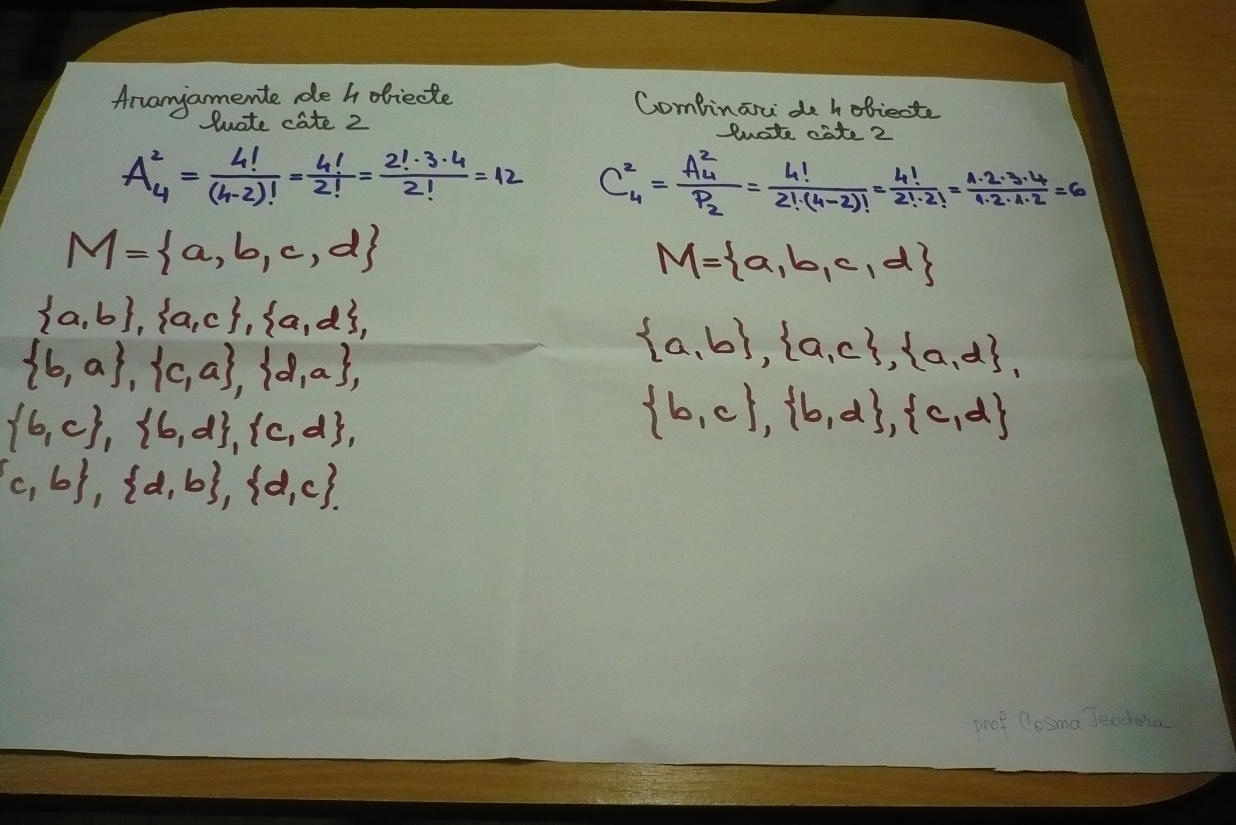 Aranjamente de 4 obiecte
luate câte 2
A₄² = 4!/(4-2)! = 4!/2! = 2!·3·4/2! = 12
M={a,b,c,d}
{a,b}, {a,c}, {a,d},
{b,a}, {c,a}, {d,a},
{b,c}, {b,d}, {c,d},
{c,b}, {d,b}, {d,c}.
Combinări de 4 obiecte
luate câte 2
C₄² = A₄²/P₂ = 4!/2!·(4-2)! = 4!/2!·2! = 1·2·3·4/1·2·1·2 = 6
M={a,b,c,d}
{a,b}, {a,c}, {a,d},
{b,c}, {b,d}, {c,d}
prof Cosma Teodora